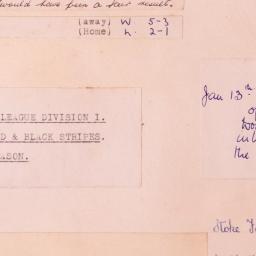 would have been a fair result.
(away) W. 5-3
(Home) L. 2-1
LEAGUE DIVISION I.
D & BLACK STRIPES.
ASON.
Jan 13th
the
Stoke